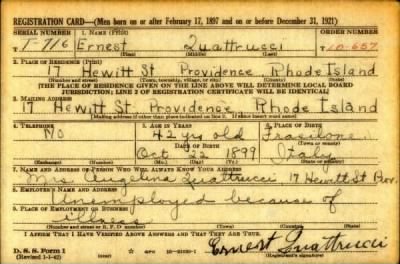 REGISTRATION CARD—(Men born on or after February 17, 1897 and on or before December 31, 1921)
SERIAL NUMBER 1. NAME (Print) ORDER NUMBER
T-716 Ernest Quattrucci 10-657
(First) (Middle) (Last)
2. PLACE OF RESIDENCE (Print)
17 Hewitt St. Providence Rhode Island
(Number and street) (Town, township, village, or city) (County) (State)
[THE PLACE OF RESIDENCE GIVEN ON THE LINE ABOVE WILL DETERMINE LOCAL BOARD
JURISDICTION; LINE 2 OF REGISTRATION CERTIFICATE WILL BE IDENTICAL]
3. MAILING ADDRESS
17 Hewitt St. Providence Rhode Island
[Mailing address if other than place indicated on line 2. If same insert word same]
4. TELEPHONE 5. AGE IN YEARS 6. PLACE OF BIRTH
No 42 yrs old
DATE OF BIRTH (Town or county)
Oct 22 1899 Italy
(Exchange) (Number) (Mo.) (Day) (Yr.) (State or country)
7. NAME AND ADDRESS OF PERSON WHO WILL ALWAYS KNOW YOUR ADDRESS
Mrs Angelina Quattrucci 17 Hewitt St Prov.
8. EMPLOYER'S NAME AND ADDRESS
Unemployed because of
9. PLACE OF EMPLOYMENT OR BUSINESS
illness
(Number and street or R. F. D. number) (Town) (County) (State)
I AFFIRM THAT I HAVE VERIFIED ABOVE ANSWERS AND THAT THEY ARE TRUE.
D. S. S. Form 1
(Revised 1-1-42) (over)
Ernest Quattrucci
(Registrant's signature)